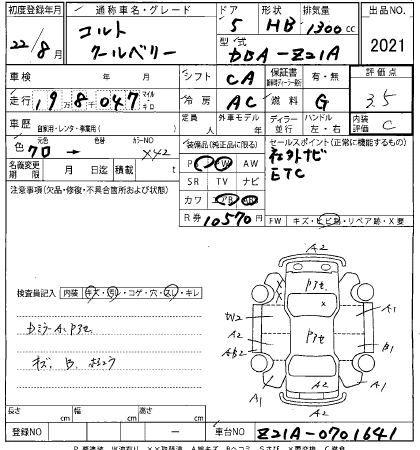 初度登録年月 通称車名・グレード ドア 形状 排気量 出品NO.
22/8月 コルト クールベリー 5 HB 1300cc 2021
型/式 DBA-Z21A
車検 年 月 シフト CA 保証書 有・無 評価点
走行 19万8千047 マイル・キロ 冷房 AC 燃料 G 3.5
車歴 自家用・レンタ・事業用( ) 定員 人 外車モデル 年 ディーラー 並行 ハンドル 左・右 内装評価 C
色 クロ 元色 → 色替 カラーNO X42 装備品(純正品に限る) セールスポイント(正常に機能するもの)
PS PW AW 社外ナビ
SR TV ナビ ETC
名義変更期限 月 日 積 月
カワ AB
注意事項(欠品・修復・不具合箇所および状態) R券 10570円 FW キズ・ヒビ跡・リペア跡・X要
検査員記入 内装 キズ・汚レ・コゲ・穴・スレ・キレ
A2
P3セ
A1
X
W2
P3セ
A2
AB2
B1
A2
A1
A1
A2
長さ cm 幅 cm 高さ cm
登録NO ー 車台NO Z21A-0701641